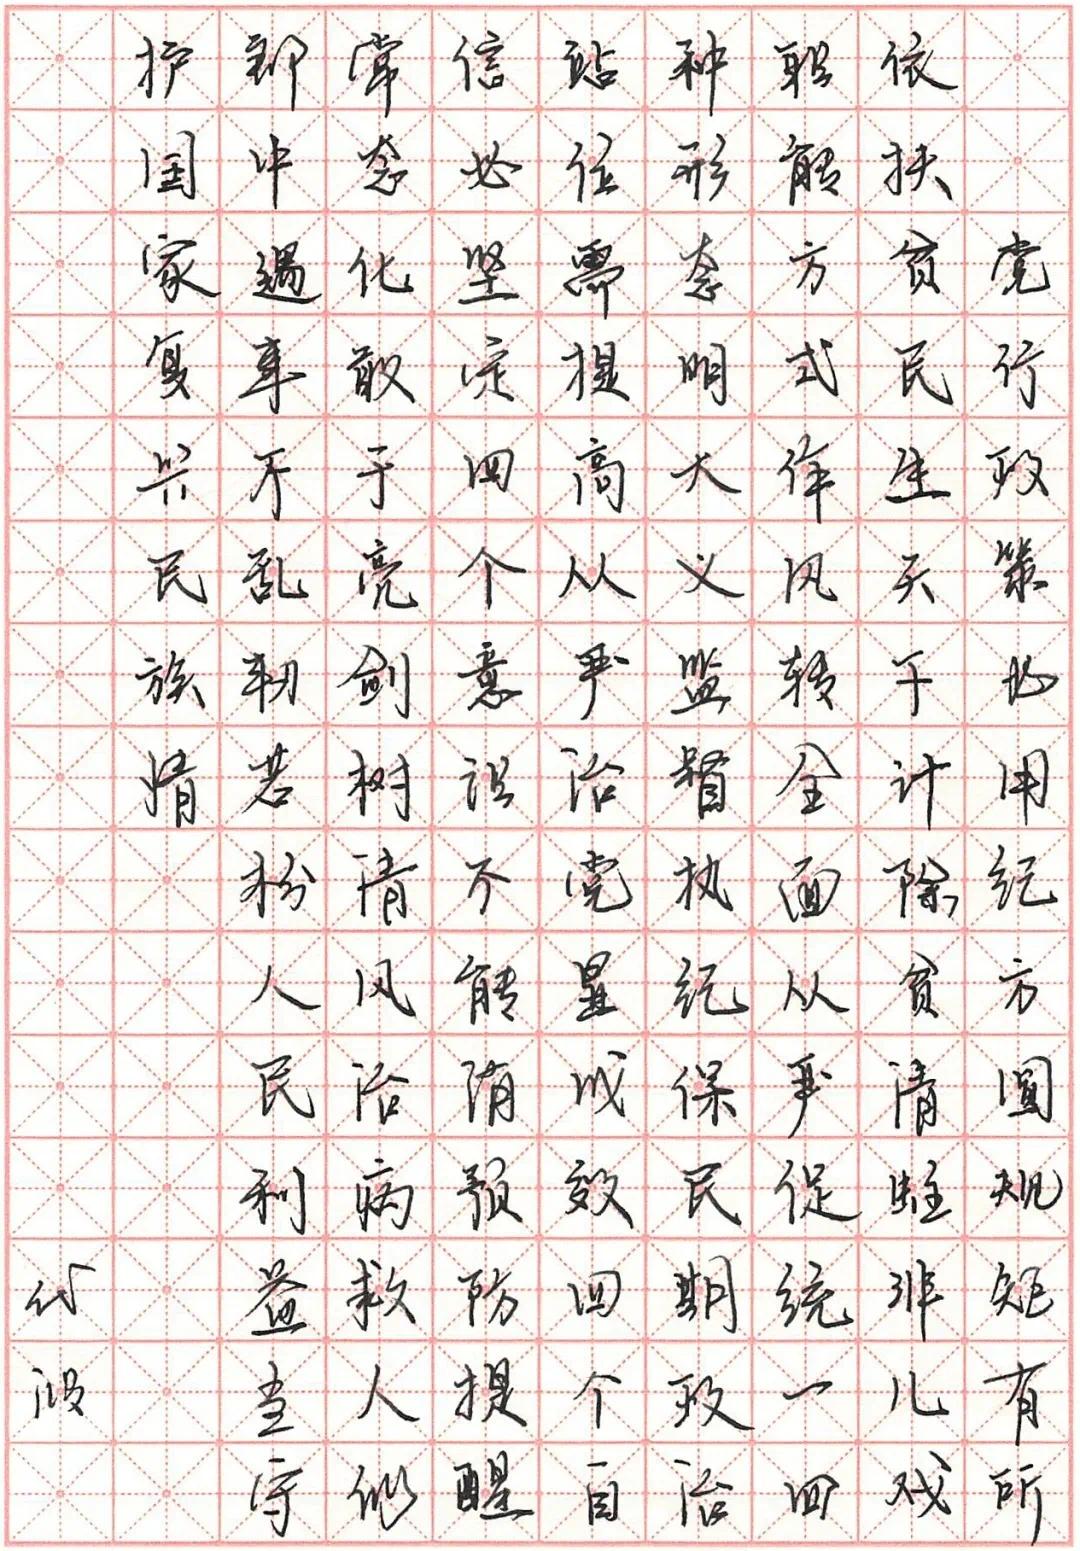 党行政策比用纪方圆规矩有所
依扶贫民生天下计除贫清蛀非儿戏
职能方式作风转全面从严促统一四
种形态明大义监督执纪保民期政治
站位需提高从严治党显成效四个自
信必坚定四个意识不能隋预防提醒
常态化敢于亮剑树清风治病救人似
郎中遇事不乱韧若松人民利益当守
护国家复兴民族情